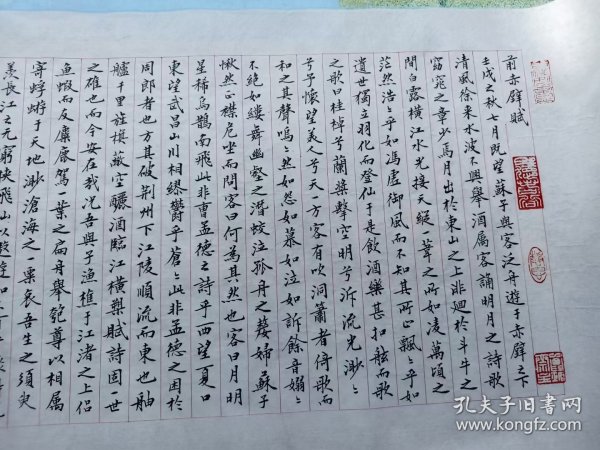 前赤壁賦
壬戌之秋七月既望蘇子與客泛舟遊于赤壁之下
清風徐来水波不興舉酒属客誦明月之詩歌
窈窕之章少焉月出於東山之上徘徊於斗牛之
間白露橫江水光接天縱一葦之所如凌萬頃之
茫然浩々乎如馮虚御風而不知其所止飄々乎如
遺世獨立羽化而登仙于是飲酒樂甚扣舷而歌
之歌曰桂棹兮蘭槳擊空明兮泝流光渺々
兮予懷望美人兮天一方客有吹洞蕭者倚歌而
和之其聲嗚々然如怨如慕如泣如訴餘音嫋々
不絶如縷舞幽壑之潜蛟泣孤舟之嫠婦蘇子
愀然正襟危坐而問客曰何為其然也客曰月明
星稀烏鵲南飛此非曹孟德之詩乎西望夏口
東望武昌山川相繆鬱乎蒼々此非孟德之困於
周郎者也方其破荆州下江陵順流而東也舳
艫千里旌旗蔽空釃酒臨江橫槊賦詩固一世
之雄也而今安在哉况吾與子漁樵于江渚之上侣
魚蝦而友麋鹿駕一葉之扁舟舉匏尊以相属
寄蜉蝣于天地渺滄海之一粟哀吾生之須臾
羡長江之无窮挾飛仙以遨遊
孔夫子旧书网
www.kongfz.com